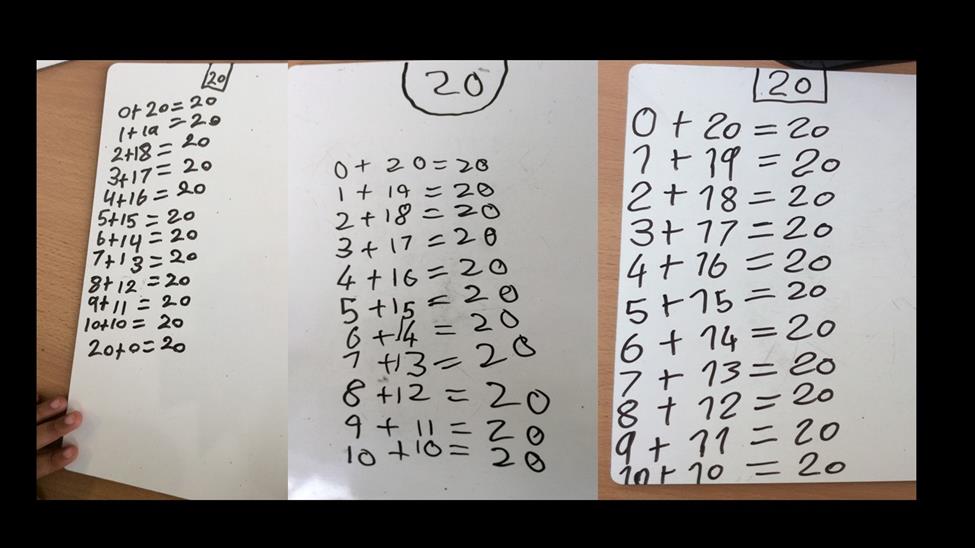 20
0+20=20
1+19=20
2+18=20
3+17=20
4+16=20
5+15=20
6+14=20
7+13=20
8+12=20
9+11=20
10+10=20
20+0=20
20
0+20=20
1+19=20
2+18=20
3+17=20
4+16=20
5+15=20
6+14=20
7+13=20
8+12=20
9+11=20
10+10=20
20
0+20=20
1+19=20
2+18=20
3+17=20
4+16=20
5+15=20
6+14=20
7+13=20
8+12=20
9+11=20
10+10=20